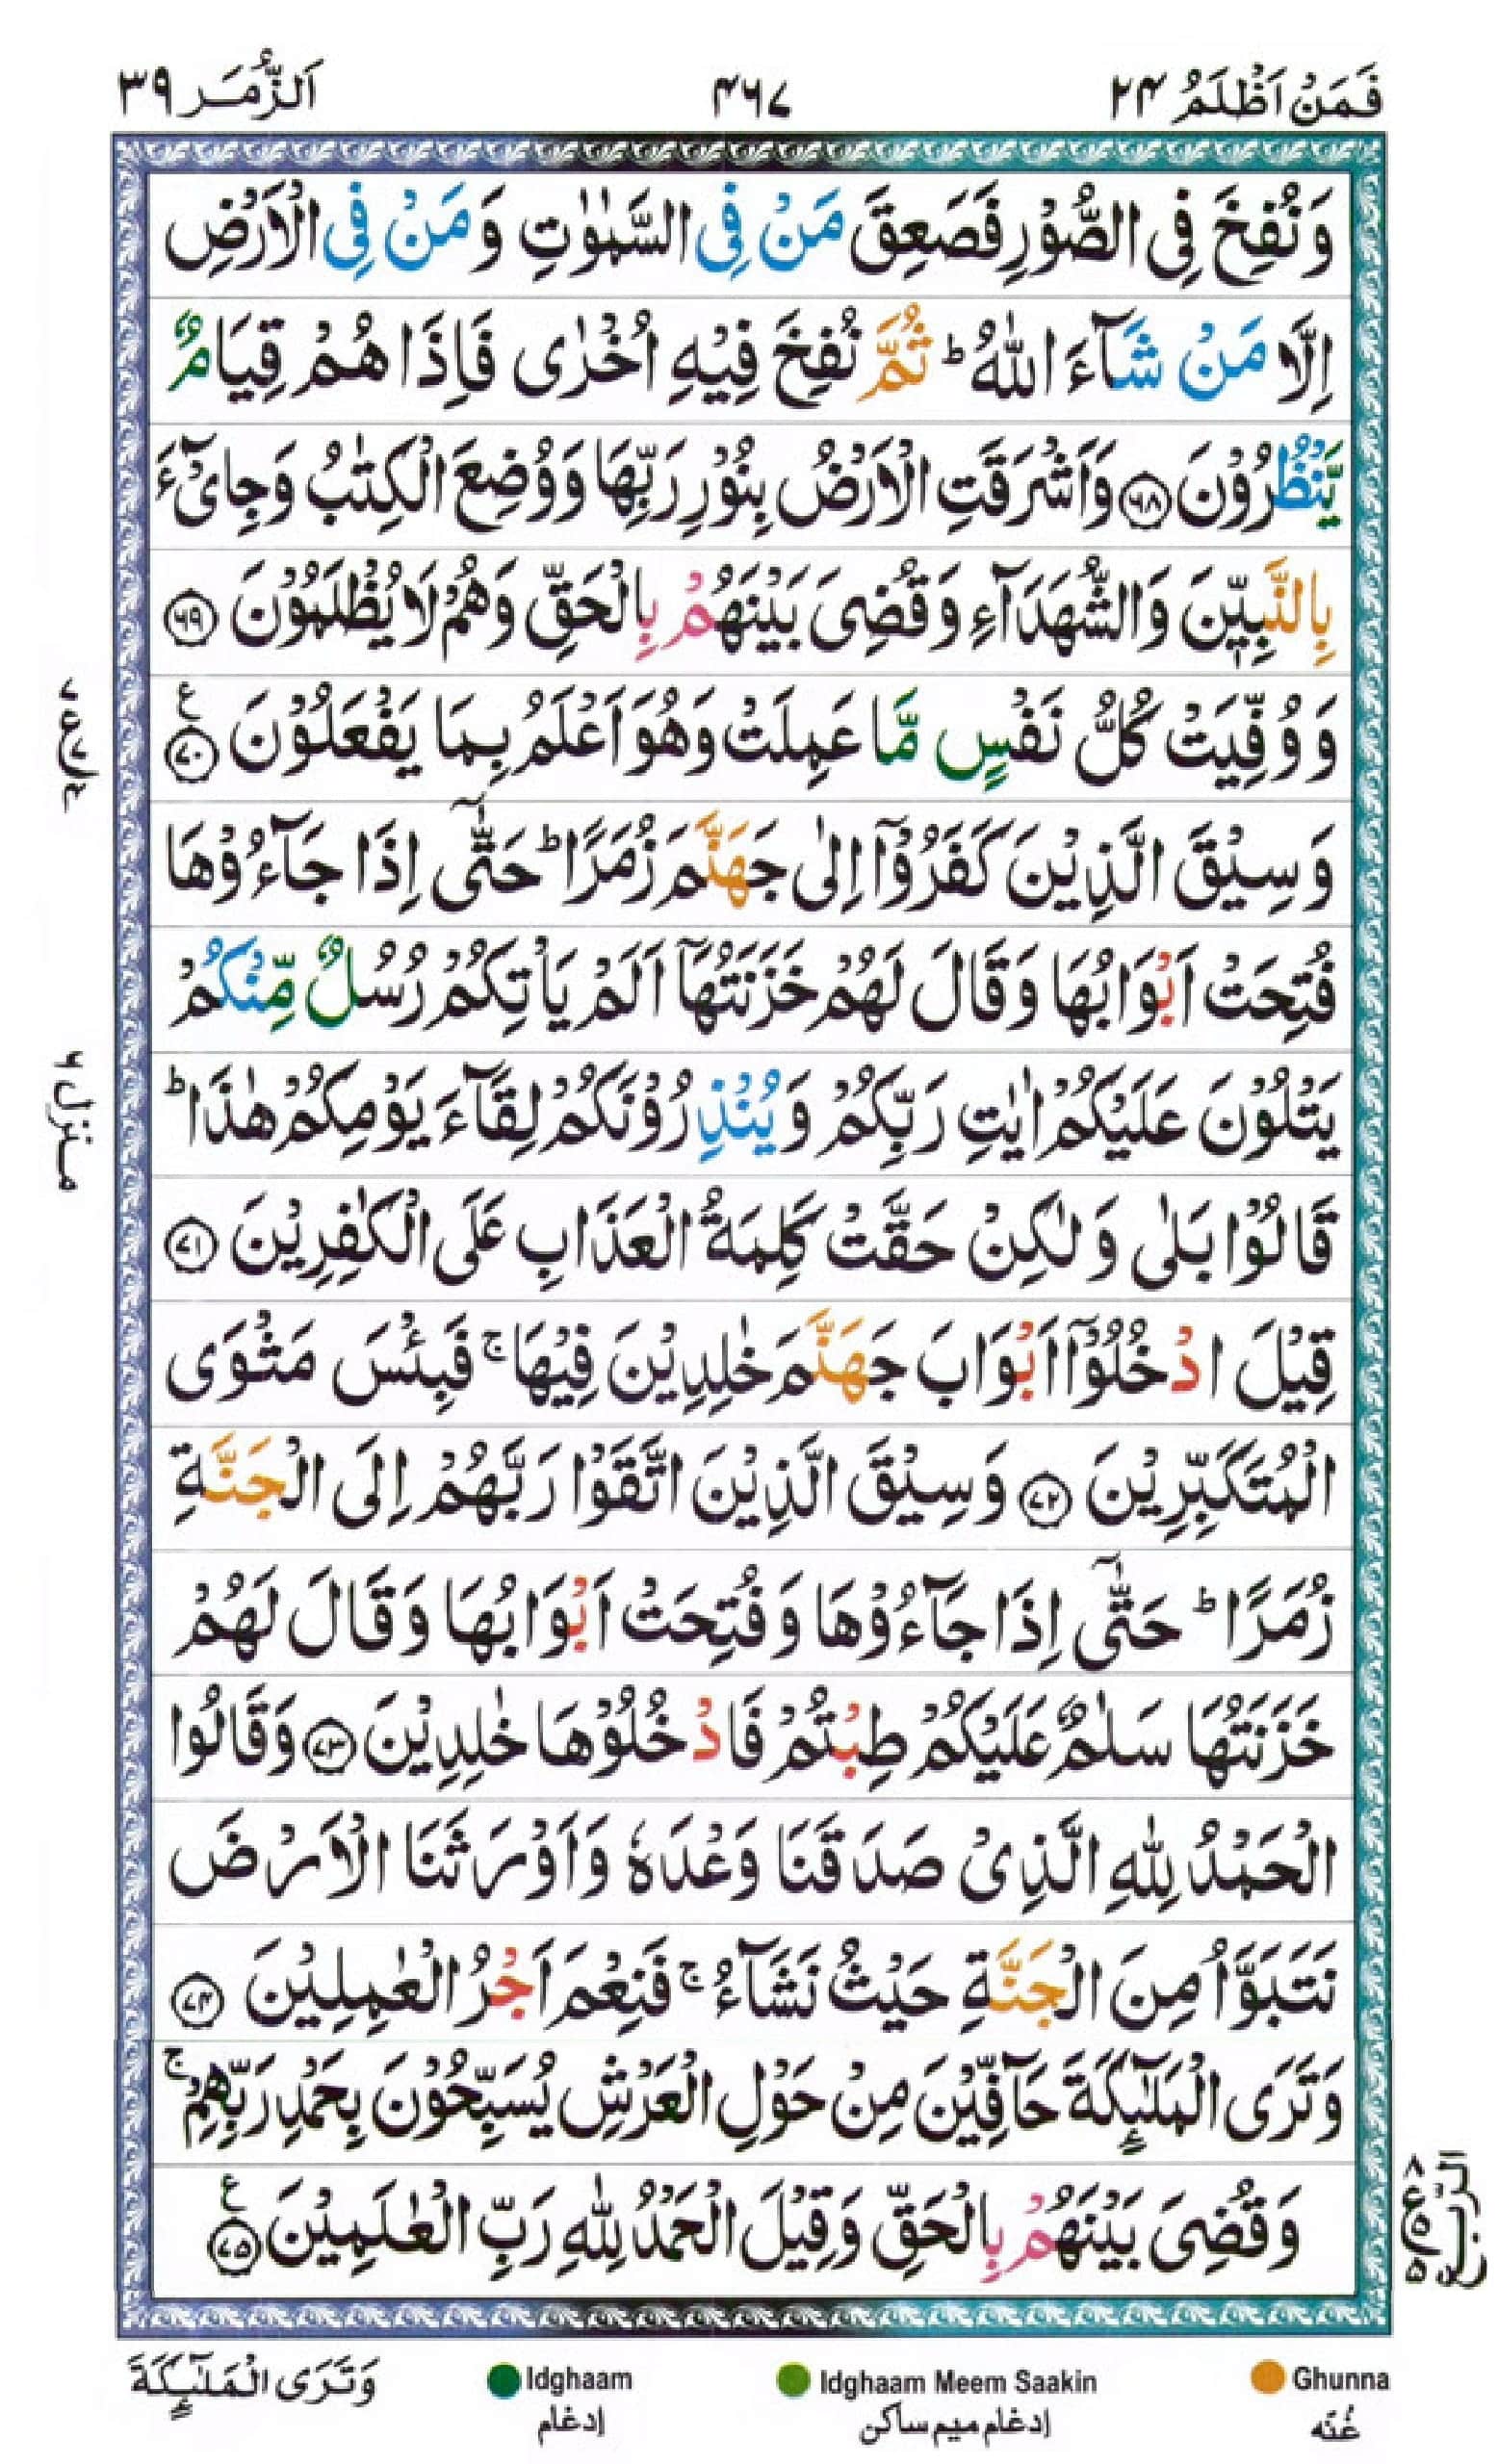 فَمَنْ اَظْلَمُ ٢٤
٤٦٧
اَلزُّمَر ٣٩
وَنُفِخَ فِی الصُّوْرِ فَصَعِقَ مَنْ فِی السَّمٰوٰتِ وَ مَنْ فِی الْاَرْضِ
اِلَّا مَنْ شَآءَ اللّٰهُ ؕ ثُمَّ نُفِخَ فِیْهِ اُخْرٰی فَاِذَا هُمْ قِیَامٌ
یَّنْظُرُوْنَ ﴿٦٨﴾ وَاَشْرَقَتِ الْاَرْضُ بِنُوْرِ رَبِّهَا وَوُضِعَ الْكِتٰبُ وَجِایْٓءَ
بِالنَّبِیّٖنَ وَالشُّهَدَآءِ وَقُضِیَ بَیْنَهُمْ بِالْحَقِّ وَهُمْ لَا یُظْلَمُوْنَ ﴿٦٩﴾
وَ وُفِّیَتْ كُلُّ نَفْسٍ مَّا عَمِلَتْ وَهُوَ اَعْلَمُ بِمَا یَفْعَلُوْنَ ﴿٧٠﴾ ع
وَسِیْقَ الَّذِیْنَ كَفَرُوْۤا اِلٰی جَهَنَّمَ زُمَرًا ؕ حَتّٰۤی اِذَا جَآءُوْهَا
فُتِحَتْ اَبْوَابُهَا وَقَالَ لَهُمْ خَزَنَتُهَاۤ اَلَمْ یَاْتِكُمْ رُسُلٌ مِّنْكُمْ
یَتْلُوْنَ عَلَیْكُمْ اٰیٰتِ رَبِّكُمْ وَ یُنْذِرُوْنَكُمْ لِقَآءَ یَوْمِكُمْ هٰذَا ؕ
قَالُوْا بَلٰی وَ لٰكِنْ حَقَّتْ كَلِمَةُ الْعَذَابِ عَلَی الْكٰفِرِیْنَ ﴿٧١﴾
قِیْلَ ادْخُلُوْۤا اَبْوَابَ جَهَنَّمَ خٰلِدِیْنَ فِیْهَا ۚ فَبِئْسَ مَثْوَی
الْمُتَكَبِّرِیْنَ ﴿٧٢﴾ وَسِیْقَ الَّذِیْنَ اتَّقَوْا رَبَّهُمْ اِلَی الْجَنَّةِ
زُمَرًا ؕ حَتّٰۤی اِذَا جَآءُوْهَا وَفُتِحَتْ اَبْوَابُهَا وَقَالَ لَهُمْ
خَزَنَتُهَا سَلٰمٌ عَلَیْكُمْ طِبْتُمْ فَادْخُلُوْهَا خٰلِدِیْنَ ﴿٧٣﴾ وَقَالُوا
الْحَمْدُ لِلّٰهِ الَّذِیْ صَدَقَنَا وَعْدَهٗ وَاَوْرَثَنَا الْاَرْضَ
نَتَبَوَّاُ مِنَ الْجَنَّةِ حَیْثُ نَشَآءُ ۚ فَنِعْمَ اَجْرُ الْعٰمِلِیْنَ ﴿٧٤﴾
وَتَرَی الْمَلٰٓىِٕكَةَ حَآفِّیْنَ مِنْ حَوْلِ الْعَرْشِ یُسَبِّحُوْنَ بِحَمْدِ رَبِّهِمْ ۚ
وَقُضِیَ بَیْنَهُمْ بِالْحَقِّ وَقِیْلَ الْحَمْدُ لِلّٰهِ رَبِّ الْعٰلَمِیْنَ ﴿٧٥﴾ ع
منزل ٦
الربع
وَتَرَی الْمَلٰٓىِٕكَةَ
Idghaam
ادغام
Idghaam Meem Saakin
ادغام میم ساکن
Ghunna
غُنّه